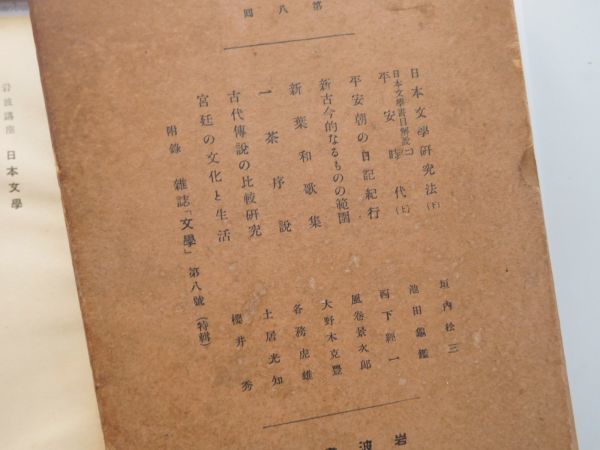 第八回
日本文學研究法（下）　垣內松三
日本文學書目解說（二）
平安時代（上）　池田龜鑑
平安朝の日記紀行　西下經一
新古今的なるものの範圍　風卷景次郎
新葉和歌集　大野木克豐
一茶序說　各務虎雄
古代傳說の比較硏究　土居光知
宮廷の文化と生活　櫻井秀
附錄　雜誌「文學」第八號（特輯）
岩波
岩波講座　日本文學